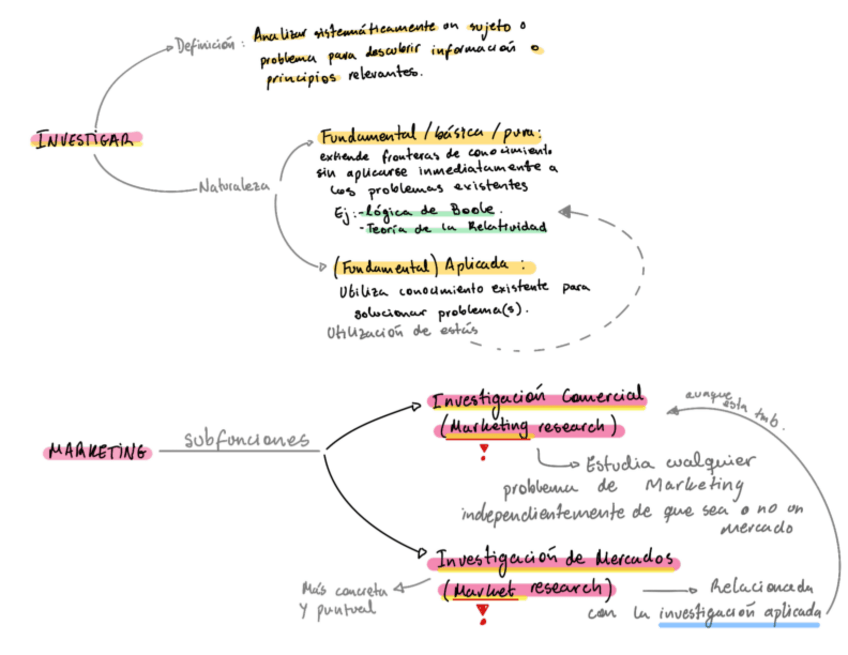 Definición: Analizar sistemáticamente un sujeto o
problema para descubrir información o
principios relevantes.
INVESTIGAR
Naturaleza
Fundamental / básica / pura:
extiende fronteras de conocimiento
sin aplicarse inmediatamente a
los problemas existentes
Ej: - Lógica de Boole.
- Teoría de la Relatividad
(Fundamental) Aplicada:
Utiliza conocimiento existente para
solucionar problema(s).
Utilización de estás
MARKETING
subfunciones
Investigación Comercial
(Marketing research)
aunque
esta tmb.
Estudia cualquier
problema de Marketing
independientemente de que sea o no un
mercado
Investigación de Mercados
(Market research)
Más concreta
y puntual
Relacionada
con la investigación aplicada